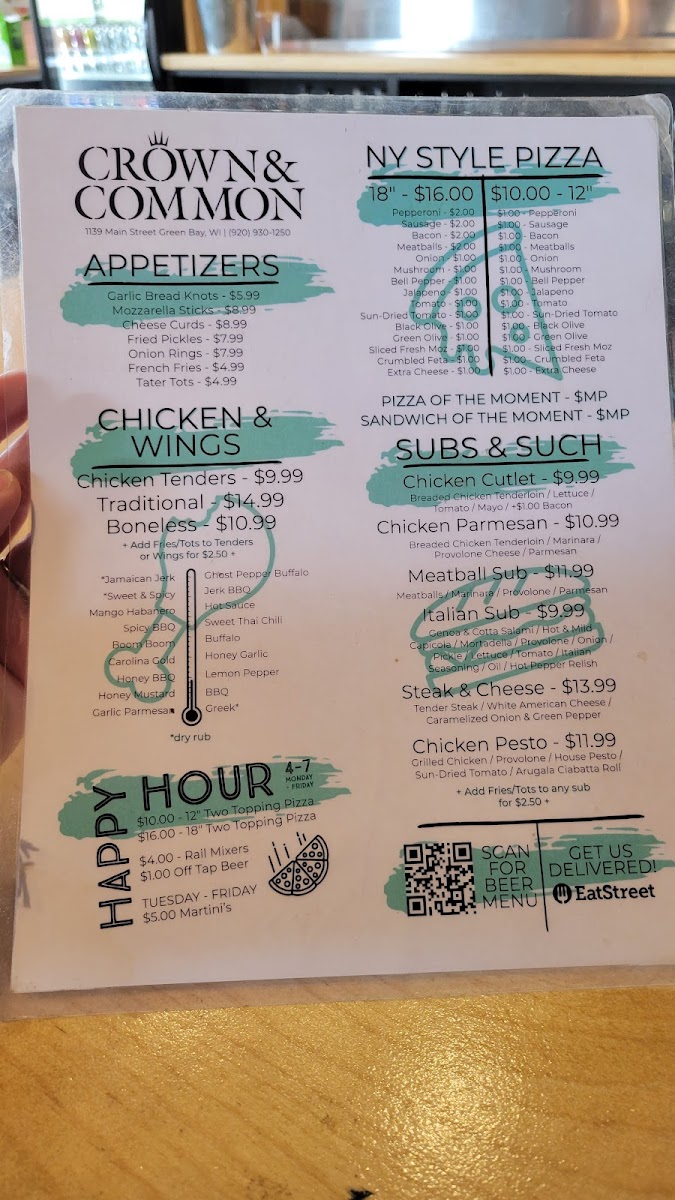 CROWN&
COMMON
1139 Main Street Green Bay, WI | (920) 930-1250
APPETIZERS
Garlic Bread Knots - $5.99
Mozzarella Sticks - $8.99
Cheese Curds - $8.99
Fried Pickles - $7.99
Onion Rings - $7.99
French Fries - $4.99
Tater Tots - $4.99
CHICKEN &
WINGS
Chicken Tenders - $9.99
Traditional - $14.99
Boneless - $10.99
+ Add Fries/Tots to Tenders
or Wings for $2.50 +
*Jamaican Jerk
*Sweet & Spicy
Mango Habanero
Spicy BBQ
Boom Boom
Carolina Gold
Honey BBQ
Honey Mustard
Garlic Parmesan
Ghost Pepper Buffalo
Jerk BBQ
Hot Sauce
Sweet Thai Chili
Buffalo
Honey Garlic
Lemon Pepper
BBQ
Greek*
*dry rub
HAPPY
HOUR
4-7
MONDAY
- FRIDAY
$10.00 - 12" Two Topping Pizza
$16.00 - 18" Two Topping Pizza
$4.00 - Rail Mixers
$1.00 Off Tap Beer
TUESDAY - FRIDAY
$5.00 Martini's
NY STYLE PIZZA
18" - $16.00
Pepperoni - $2.00
Sausage - $2.00
Bacon - $2.00
Meatballs - $2.00
Onion - $1.00
Mushroom - $1.00
Bell Pepper - $1.00
Jalapeno - $1.00
Tomato - $1.00
Sun-Dried Tomato - $1.00
Black Olive - $1.00
Green Olive - $1.00
Sliced Fresh Moz - $1.00
Crumbled Feta - $1.00
Extra Cheese - $1.00
$10.00 - 12"
$1.00 - Pepperoni
$1.00 - Sausage
$1.00 - Bacon
$1.00 - Meatballs
$1.00 - Onion
$1.00 - Mushroom
$1.00 - Bell Pepper
$1.00 - Jalapeno
$1.00 - Tomato
$1.00 - Sun-Dried Tomato
$1.00 - Black Olive
$1.00 - Green Olive
$1.00 - Sliced Fresh Moz
$1.00 - Crumbled Feta
$1.00 - Extra Cheese
PIZZA OF THE MOMENT - $MP
SANDWICH OF THE MOMENT - $MP
SUBS & SUCH
Chicken Cutlet - $9.99
Breaded Chicken Tenderloin / Lettuce /
Tomato / Mayo / +$1.00 Bacon
Chicken Parmesan - $10.99
Breaded Chicken Tenderloin / Marinara /
Provolone Cheese / Parmesan
Meatball Sub - $11.99
Meatballs / Marinara / Provolone / Parmesan
Italian Sub - $9.99
Genoa & Cotta Salami / Hot & Mild
Capicola / Mortadella / Provolone / Onion /
Pickle / Lettuce / Tomato / Italian
Seasoning / Oil / Hot Pepper Relish
Steak & Cheese - $13.99
Tender Steak / White American Cheese /
Caramelized Onion & Green Pepper
Chicken Pesto - $11.99
Grilled Chicken / Provolone / House Pesto /
Sun-Dried Tomato / Arugala Ciabatta Roll
+ Add Fries/Tots to any sub
for $2.50 +
SCAN
FOR
BEER
MENU
GET US
DELIVERED!
EatStreet